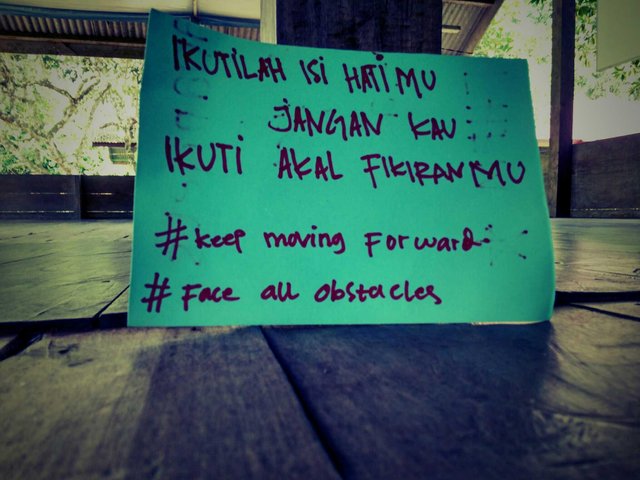 IKUTILAH ISI HATIMU
JANGAN KAU
IKUTI AKAL FIKIRANMU
# Keep moving Forward
# Face all obstacles